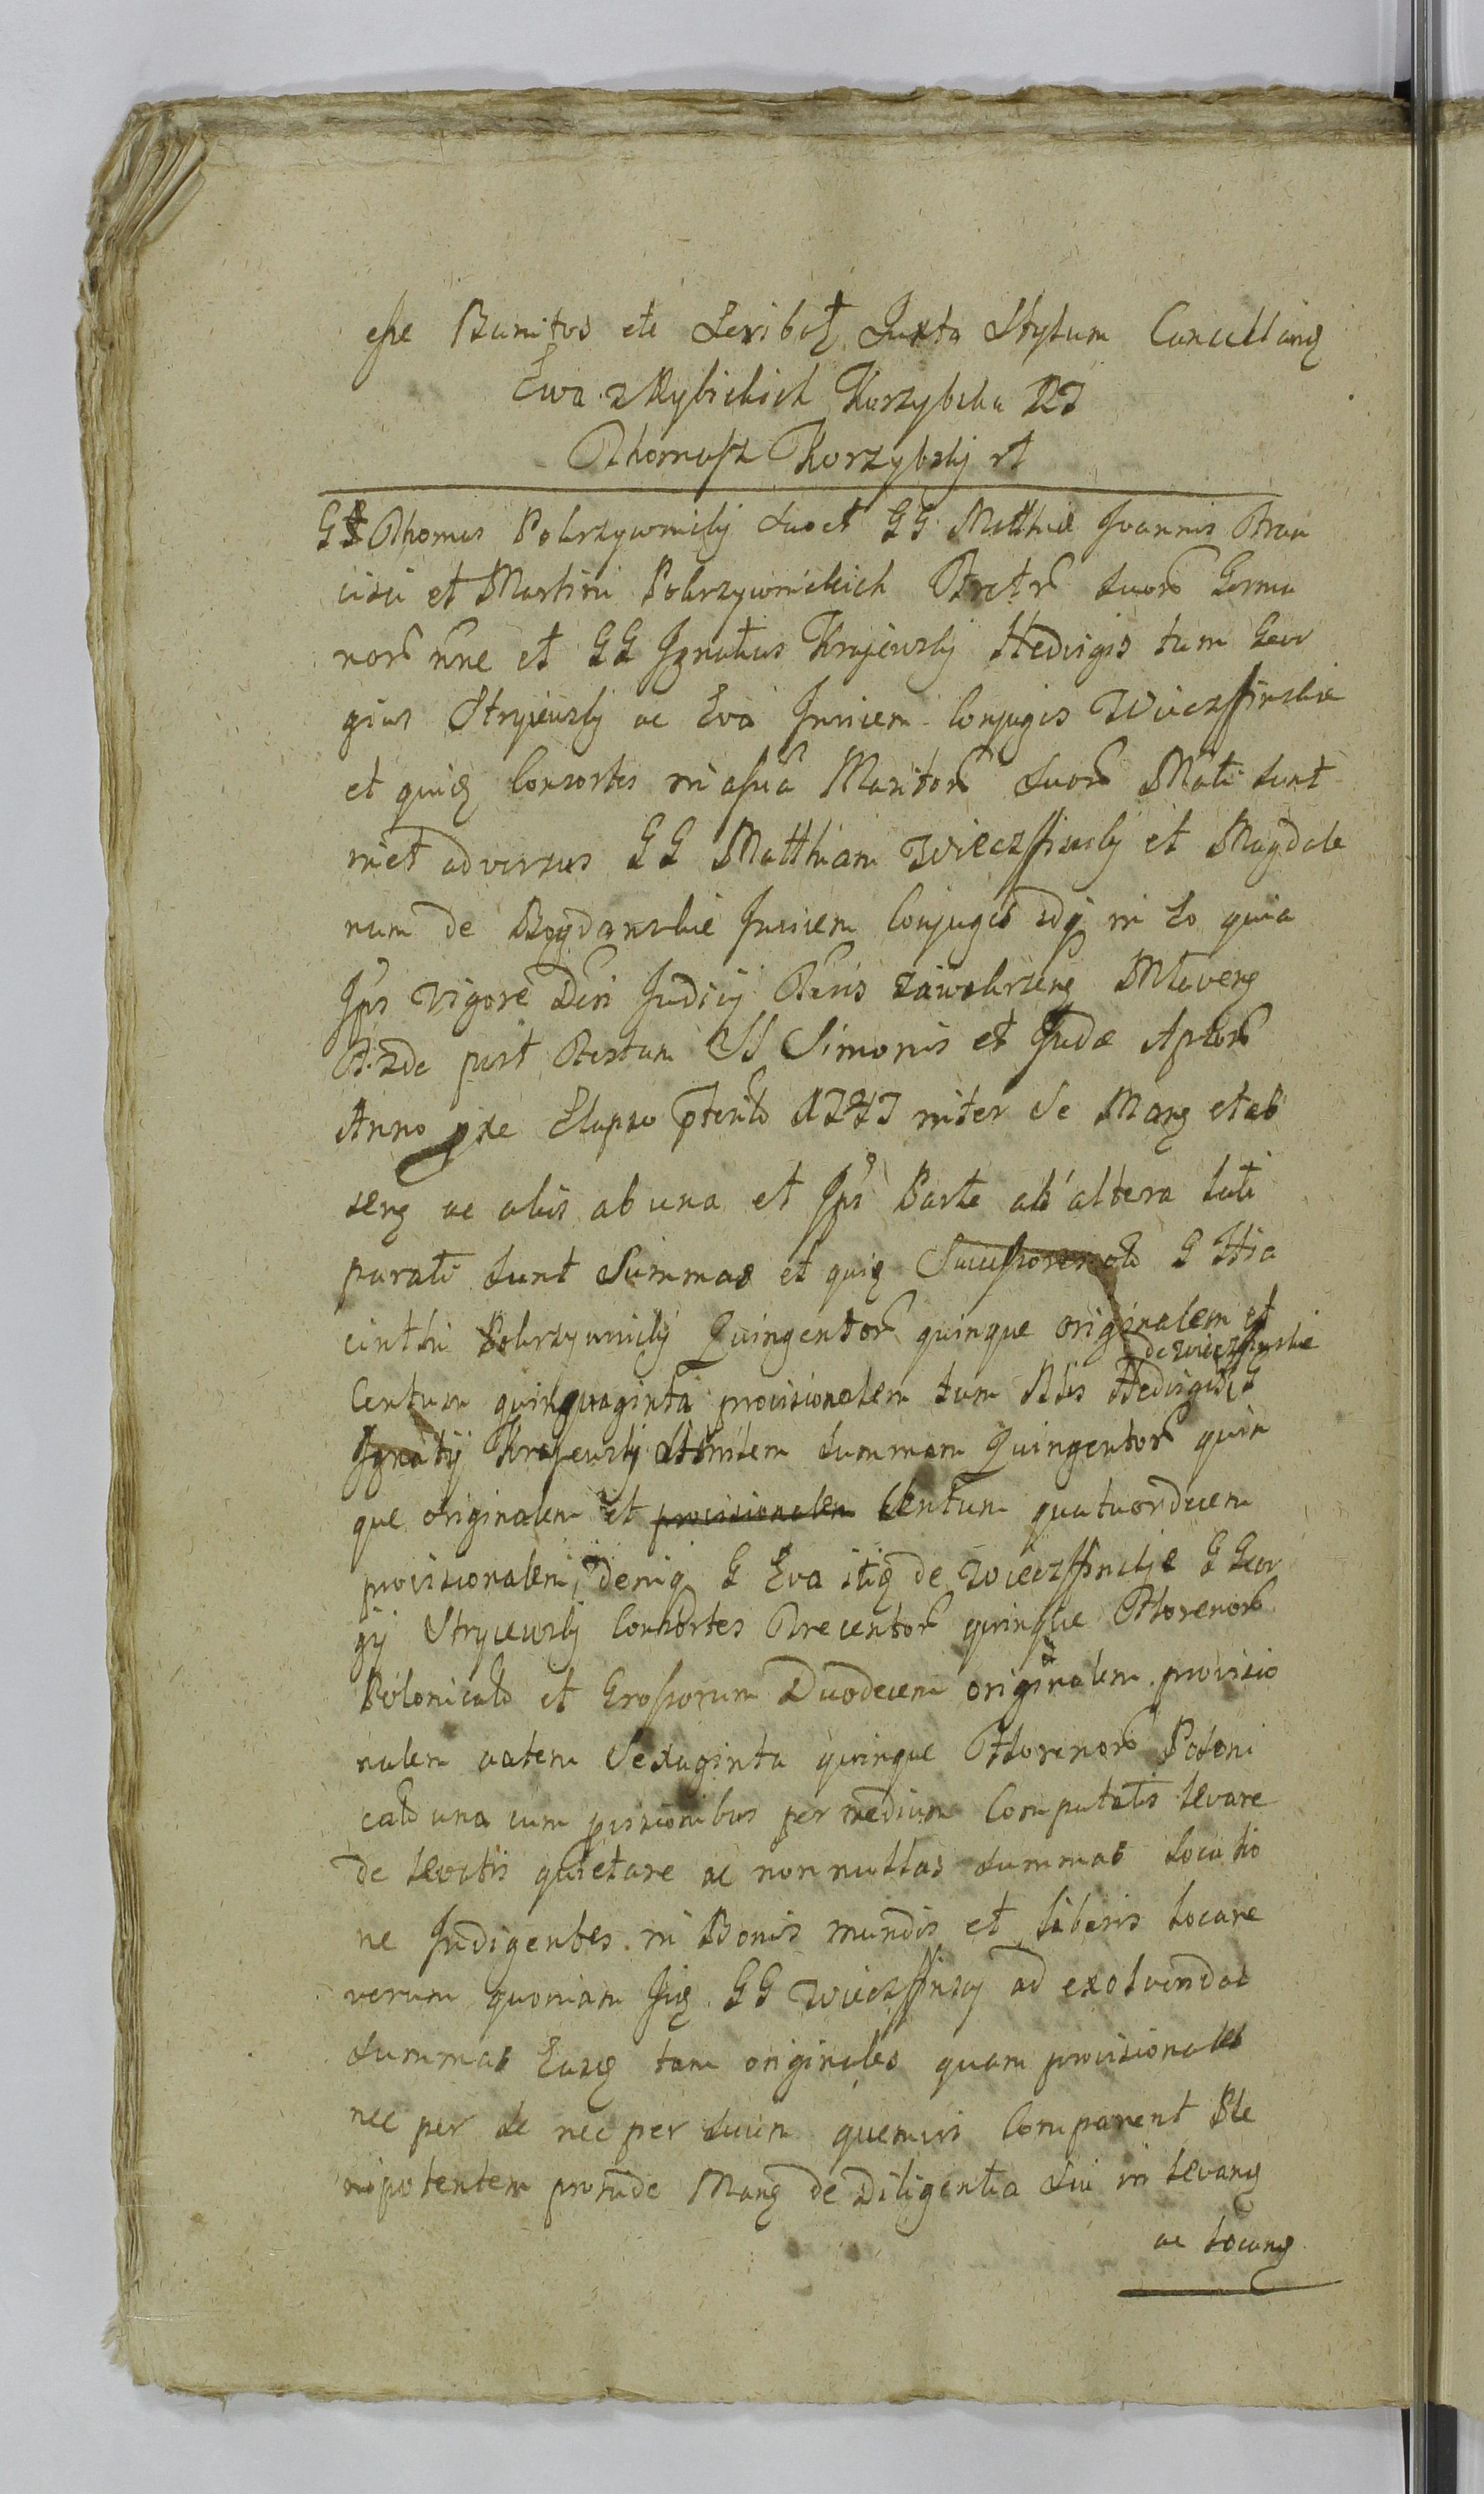 esse Bunitos etc Scribat Juxta Stylum Cancellang
Ewa z Rybickich Korzybska
Thomasz Korzybsky
G Thomas Pokrzywnicky suo et GG Matthiæ Joannis Fran
cisci et Martini Pokrzywnickich Fratr suor Germa
nor nne et GG Ignatius Krajewsky Hedvigis tum Geor
gius Stryiewsky ac Eva Invicem Conjuges Wieczffinskie
et quidem Consortes in assia Maritor suor Mati sunt
niet adversus GG Matthiam Wieczffinsky et Magdale
nam de Bogdanskie Invicem Conjuges idq in eo quia
Ipsi vigore Dni Judicij Tris Zawskrzeng Mlaveng
post Festum SS Simonis et Judæ Aplor
Anno Elapso pterito inter Se Mang et ab
seng ac aliis ab una et Ips Parte ab altera lati
parati sunt Summas et quidem Successorealo G Hia
cinthi Pokrzywnicky Quingentor quinque originalem et
de Wieczffinskie
Centum quinquaginta provisionalem tum Nlis Hedvigis G
Ignatij Krajewsky similem summam Quingentor quin
que originalem et provisionalem Centum quatuordecem
provisionalem, deniq G Eva itid de Wieczffinskie G Geor
gij Stryiewsky Consortes Trecentor quinque Florenor
Polonicalo et Grossorum Duodecem originalem provisio
nalem autem Sexaginta quinque Florenor Poloni
calo una cum pissionibus per medium Computatis levare
de levatis quietare ac nonnullas summas locatio
ne Indigentes in Bonis mundis et liberis locare
verum quoniam Jid GG Wieczffinscy ad exolvendas
summas Easd tam originales quam provisionales
nec per se nec per suum quemvis Comparent Ple
nipotentem proinde Mang de Diligentia sui in levang
ac locang